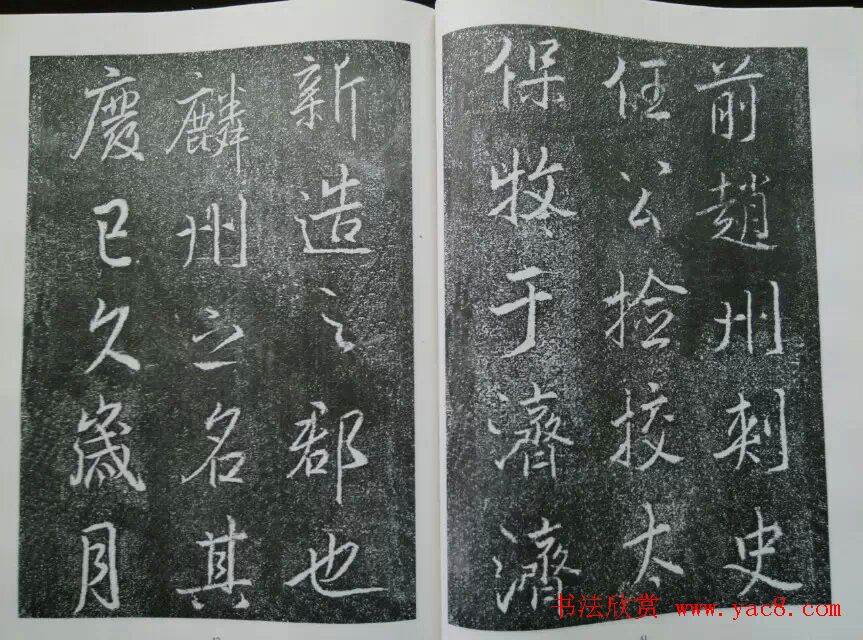 前趙州刺史
任公撿挍太
保牧于濟濟
新造之郡也
麟州之名其
慶已久歲月
书法欣赏 www.yac8.com